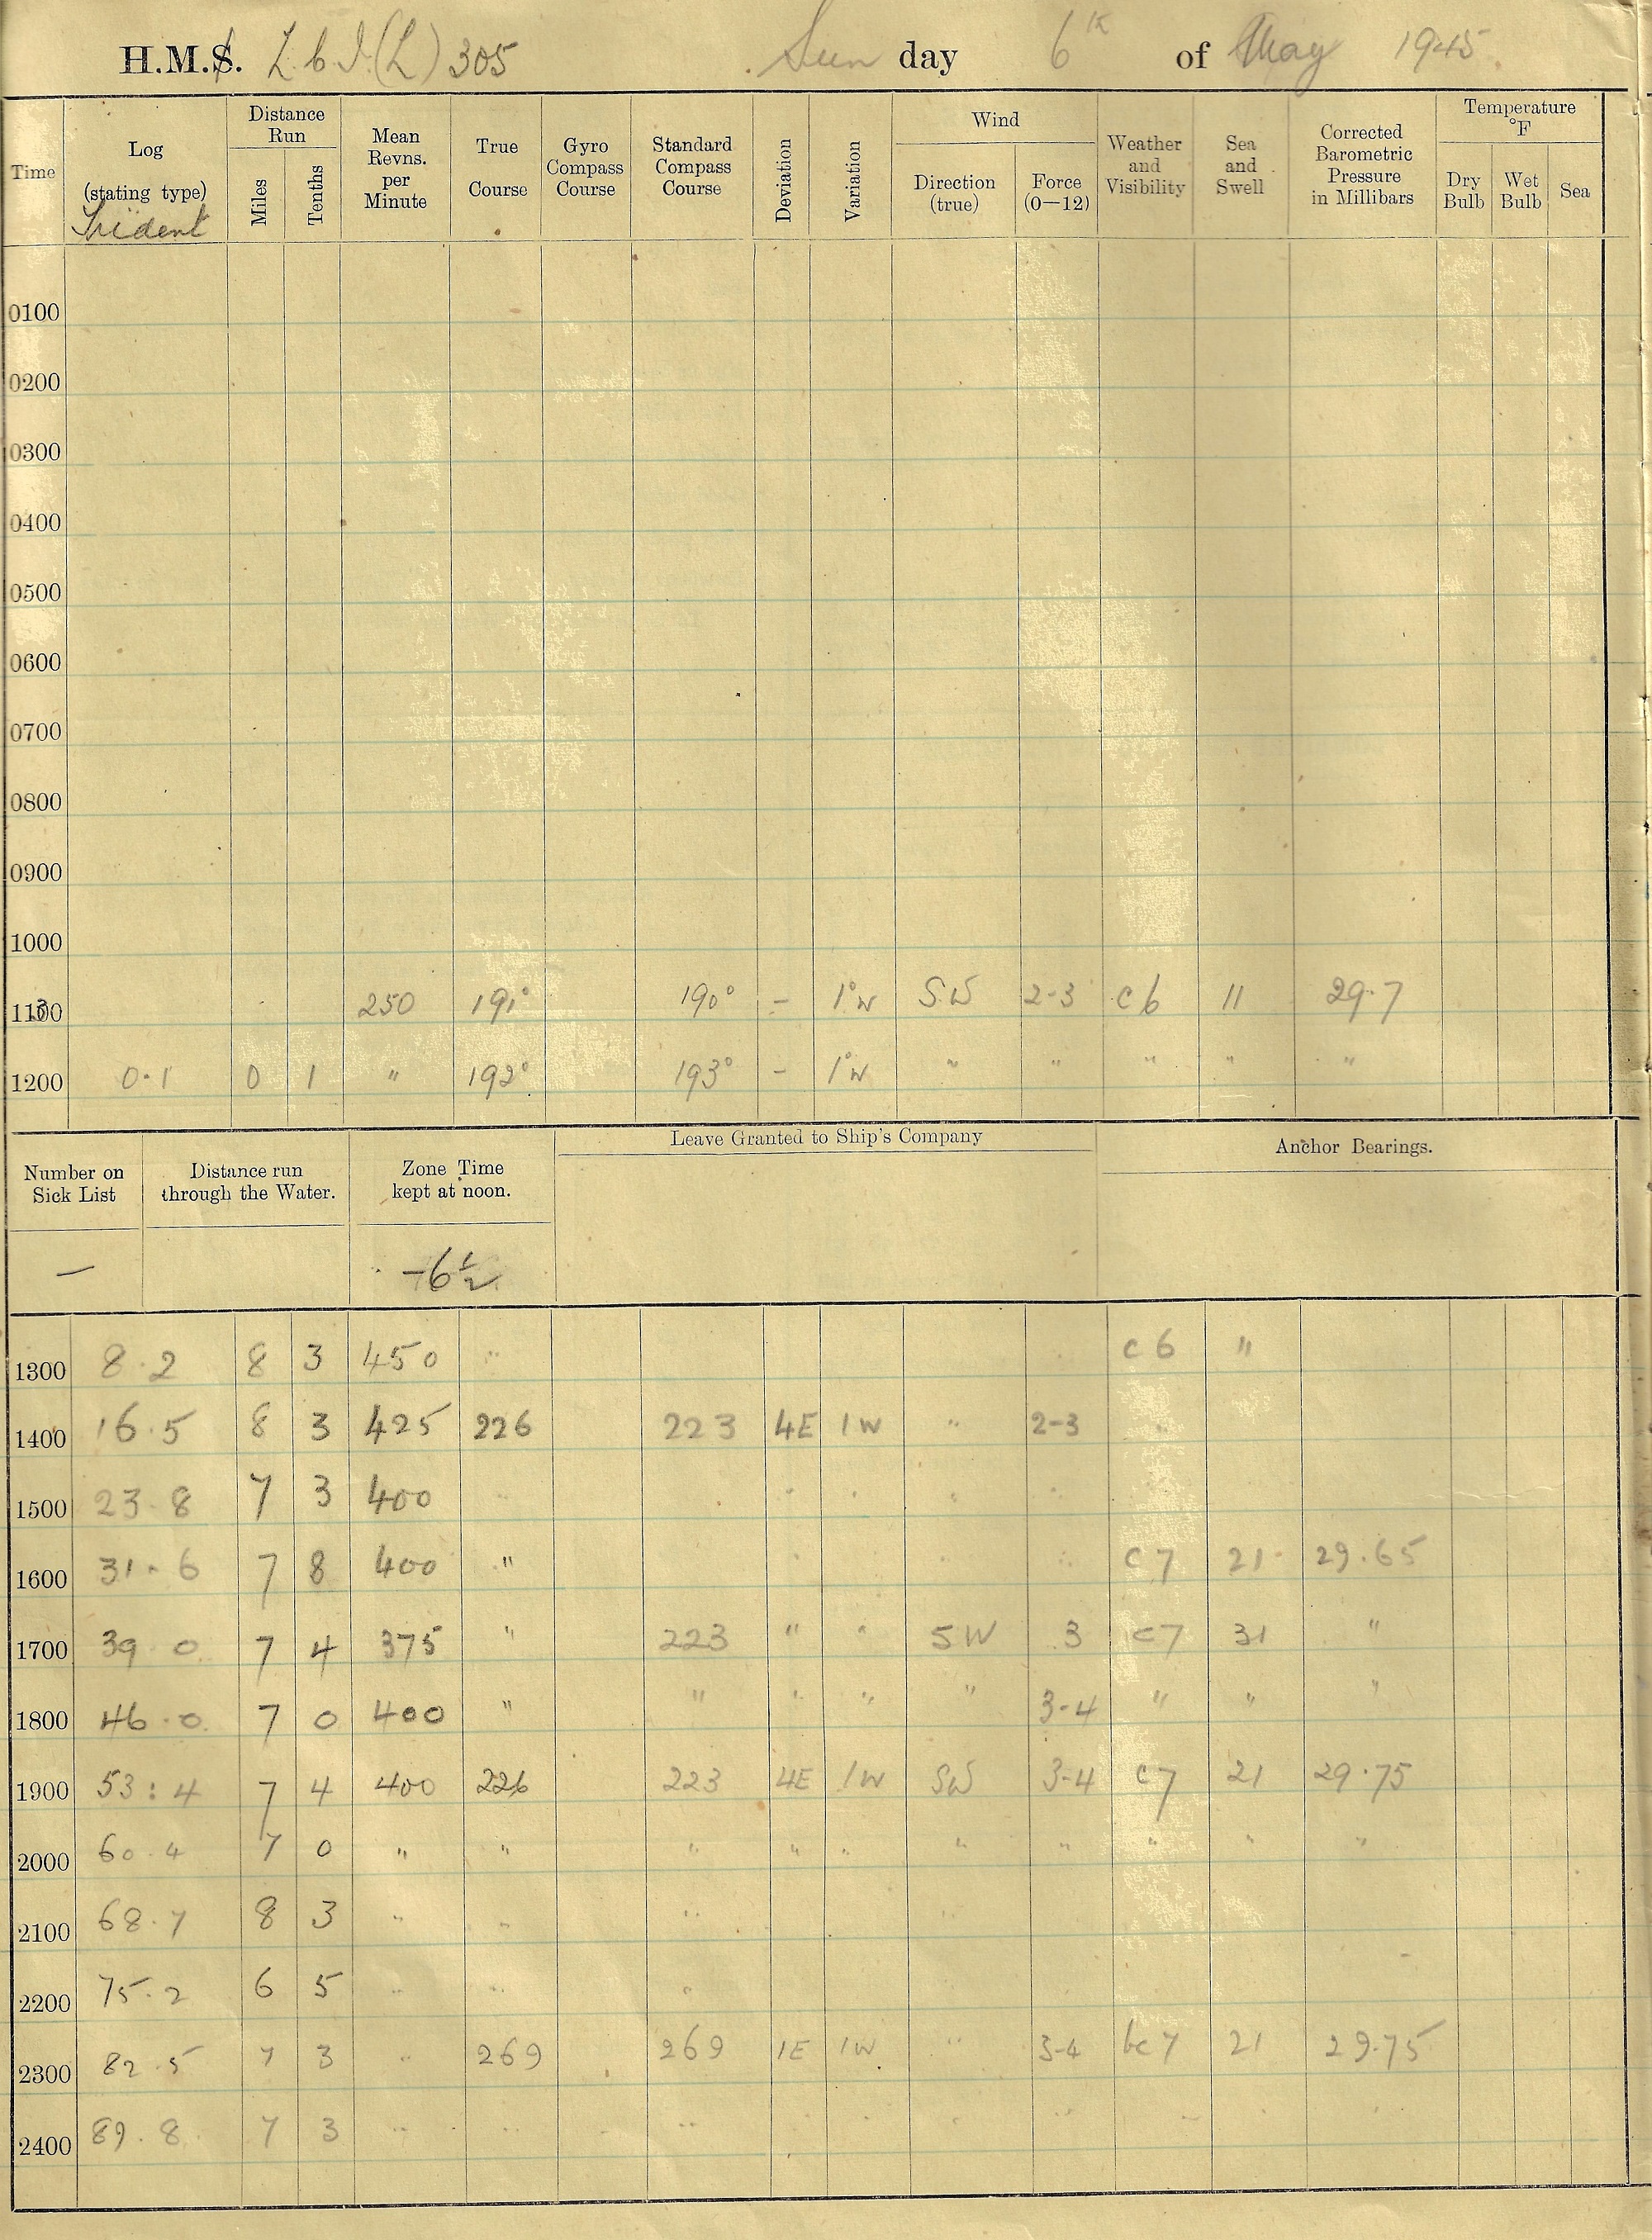 H.M.S. L C I (L) 305 Sunday 6th of May 1945.
Time Log (stating type) Trident Distance Run Miles Tenths Mean Revns. per Minute True Course Gyro Compass Course Standard Compass Course Deviation Variation Wind Direction (true) Force (0—12) Weather and Visibility Sea and Swell Corrected Barometric Pressure in Millibars Temperature °F Dry Bulb Wet Bulb Sea
0100
0200
0300
0400
0500
0600
0700
0800
0900
1000
1130 250 191° 190° - 1°W SW 2-3 c6 11 29.7
1200 0.1 0 1 " 192° 193° - 1°W " " " " "
Number on Sick List Distance run through the Water. Zone Time kept at noon. Leave Granted to Ship's Company Anchor Bearings.
— -6½
1300 8.2 8 3 450 " c6 "
1400 16.5 8 3 425 226 223 4E 1W " 2-3 "
1500 23.8 7 3 400 " " " " "
1600 31.6 7 8 400 " " " " " c7 21 29.65
1700 39.0 7 4 375 " 223 " " SW 3 c7 31 "
1800 46.0 7 0 400 " " " " " 3-4 " " "
1900 53:4 7 4 400 226 223 4E 1W SW 3-4 c7 21 29.75
2000 60.4 7 0 " " " " " " " " " "
2100 68.7 8 3 " " " "
2200 75.2 6 5 " " "
2300 82.5 7 3 " 269 269 1E 1W " 3-4 bc7 21 29.75
2400 89.8 7 3 " " " " " " "